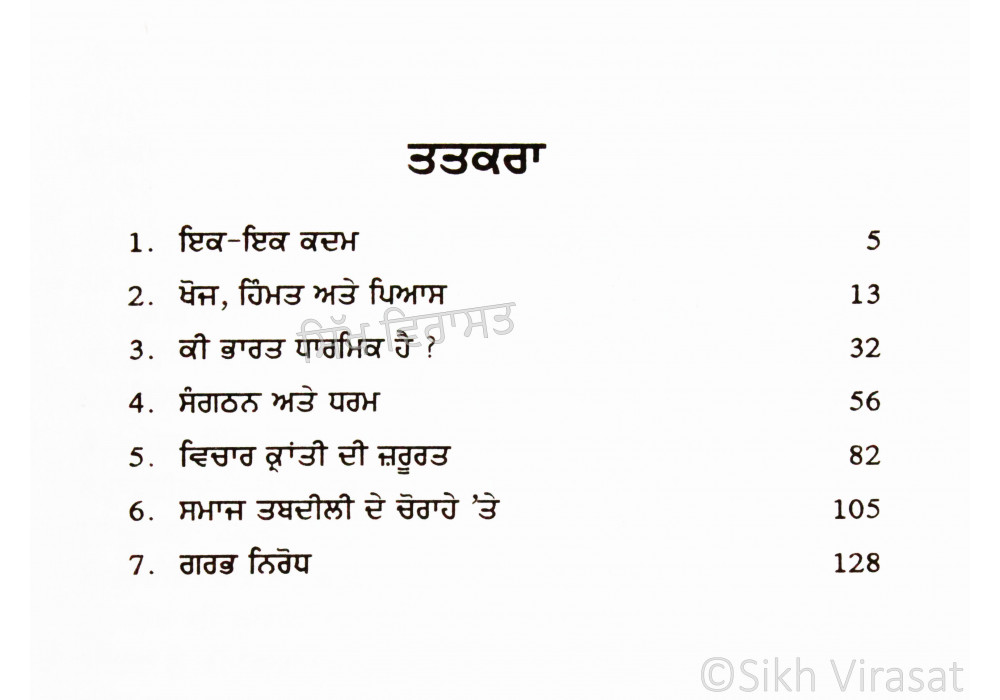 ਤਤਕਰਾ
1. ਇਕ-ਇਕ ਕਦਮ 5
2. ਖੋਜ, ਹਿੰਮਤ ਅਤੇ ਪਿਆਸ 13
ਸਿੱਖ ਵਿਰਾਸਤ
3. ਕੀ ਭਾਰਤ ਧਾਰਮਿਕ ਹੈ ? 32
4. ਸੰਗਠਨ ਅਤੇ ਧਰਮ 56
5. ਵਿਚਾਰ ਕ੍ਰਾਂਤੀ ਦੀ ਜ਼ਰੂਰਤ 82
6. ਸਮਾਜ ਤਬਦੀਲੀ ਦੇ ਚੋਰਾਹੇ 'ਤੇ 105
7. ਗਰਭ ਨਿਰੋਧ 128
©Sikh Virasat